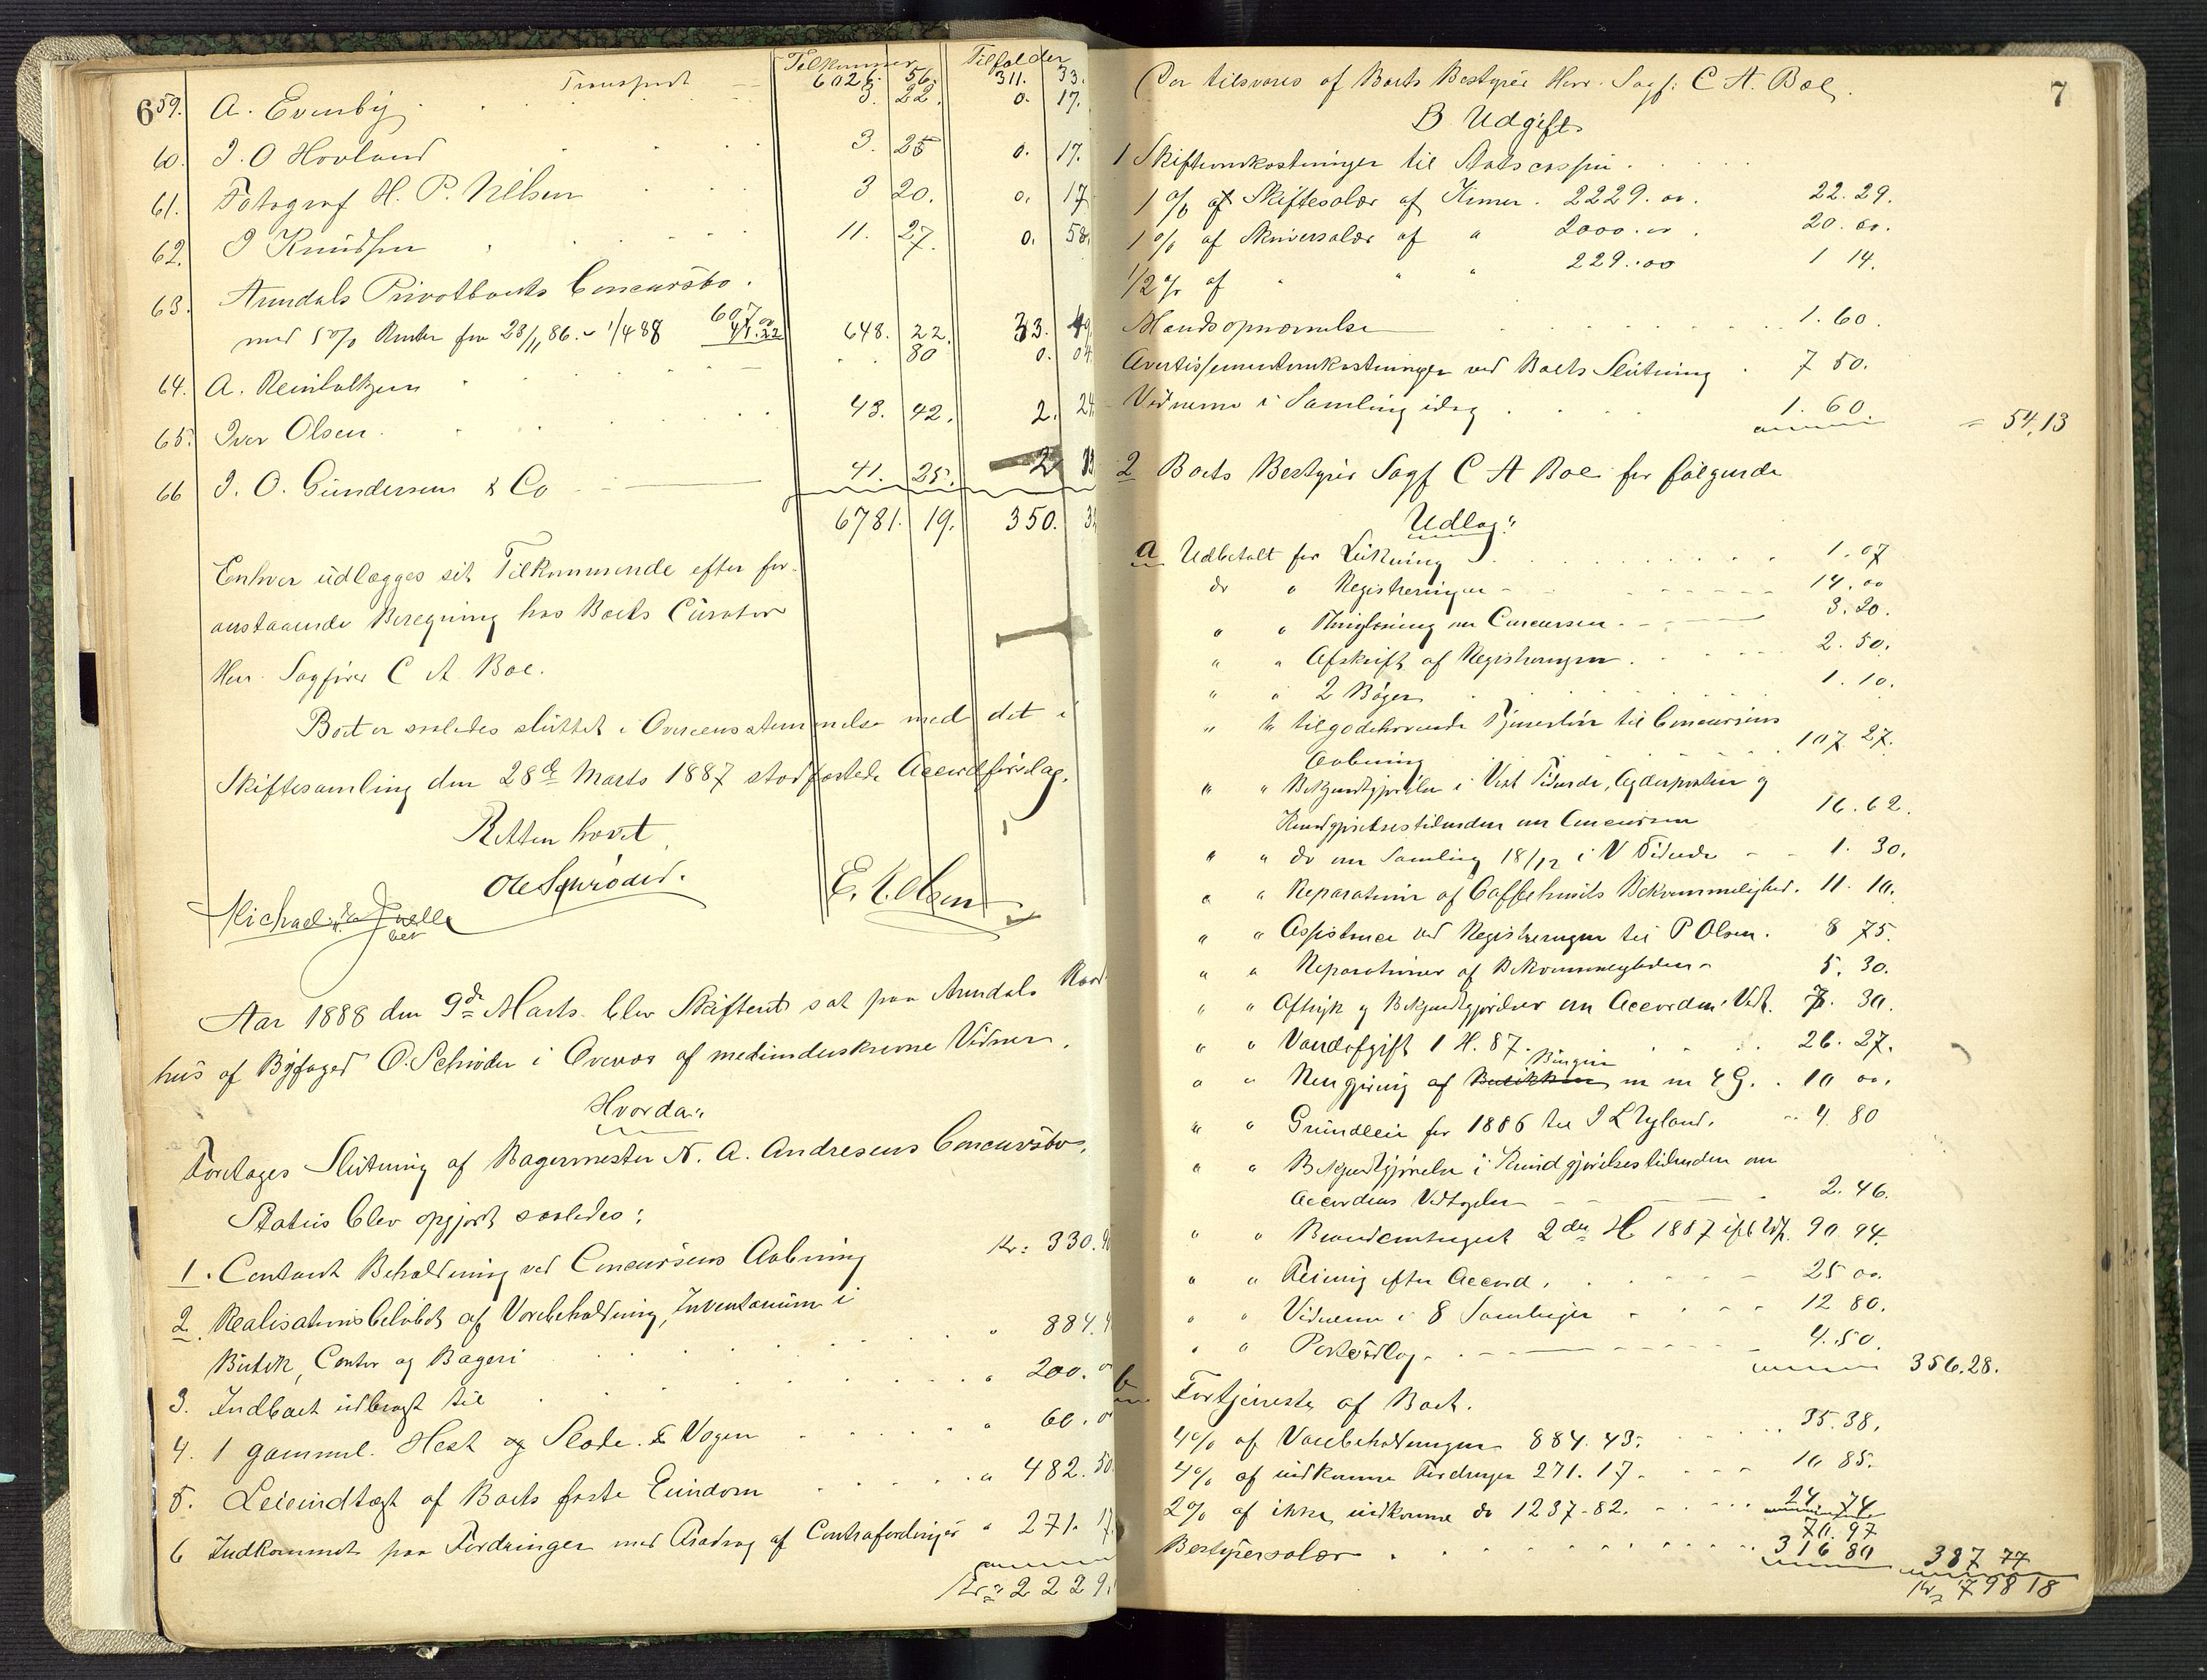 6
Tilkommer Tilfalder
Transport 6026. 56. 311. 33.
59. A. Evenby 3. 22. 0. 17.
60. J. O Hovland 3. 25 0. 17.
61. Fotograf H. P. Nilsen 3 20. 0. 17
62. J Knudsen 11. 27. 0. 58.
63. Arendals Privatbanks Concursbo.
607 00
med 5 % Renter fra 28/11 86 - 1/4 88 41.22 648. 22. 33. 49
64. A. Reinholtzen 80 0. 04
65. Iver Olsen 43. 42. 2. 24
66 J. O. Gundersen & Co 41. 25. 2 13
6781. 19. 350. 3
Enhver udlægges sit Tilkommende efter for-
anstaaende Beregning hos Boets Curator
Herr Sagfører C A Boe.
Boet er saaledes sluttet i Overensstemmelse med det i
Skiftesamling den 28de Marts 1887 stadfæstede Accordforslag.
Retten hævet
O Schrøder. E. T. Olsen
Michael Juell
Aar 1888 den 9de Marts blev Skifteret sat paa Arendals Raad
hus af Byfoged O. Schrøder i Overvær af medunderskrevne Vidner.
Hvorda:
Foretages Slutning af Bagermester N. A. Andresens Concursbo.
Status blev opgjort saaledes:
1. Contant Beholdning ved Concursens Aabning Kr: 330.9
2. Realisationsbeløbet af Varebeholdning, Inventarium i
Butik, Contor og Bageri " 884.4
3. Indboet udbragt til " 200. 0
4. 1 gammel Hest og Slæde & Vogn " 60. 0
5. Leieindtægt af Boets faste Eiendom " 482. 50
6 Indkommet paa Fordringer med Fradrag af Contrafordringer " 271. 17
Kr: 2229.
7
Der tilsvares af Boets Bestyrer Herr Sagf: C A. Boe.
B Udgift
1 Skifteomkostninger til Statscassen
1 % af Skiftesalær af Kroner 2229. 00. 22. 29.
1 % af Skriversalær af " 2000. 00. 20. 00.
1/2 % af " " " 229. 00 1 14.
Mandsopnævnelse 1. 60.
Avertissementomkostninger ved Boets Slutning 7 50.
Vidnerne i Samling idag 1. 60. = 54,13
2 Boets Bestyrer Sagf C A Boe for følgende
Udlæg:
a Udbetalt for Lukning 1. 07
do " Registreringen 14. 00
" " Thinglæsning om Concursen 3. 20.
" " Afskrift af Registreringen 2. 50.
" " 2 Bøger 1. 10.
" " tilgodehavende Tjenerløn til Concursens
Aabning 107 27.
" " Bekjendtgjørelse i Vest Tidende, Agderposten og
Kundgjørelsestidenden om Concursen 16. 62.
" " do om Samling 18/12 i V Tidende 1. 30.
" " Reparation af Caffehusets Bekvemmelighed. 11. 10.
" " Assistance ved Registreringen til P Olsen. 8 75.
" " Reparationer af Bekvemmeligheden 5. 30.
" " Aftryk og Bekjendtgjørelser om Accorden i Vest. 7. 30.
" " Vandafgift 1 H. 87. 26. 27.
Bygnin
" " Rengjøring af Butikken m m 4 G. 10 00.
" " Grundleie for 1886 til J L Tyland. 4 80
" " Bekjendtgjørelse i Kundgjørelsestidenden om
Accordens Vedtagelse 2. 46.
" " Brandcontingent 2den H 1887 90 94.
" " Reising efter Accord. 25 00.
" " Vidnerne i 8 Samlinger 12 80.
" " Portoudlæg 4. 50. 356.28.
b Fortjeneste af Boet.
4 % af Varebeholdningen 884. 43. 35. 38.
4 % af indkomne Fordringer 271. 17. 10 85.
2 % af ikke indkomne do 1237-82. 24 74
70. 97
Bestyrersalær 316 80 387 77
Kr: 798 18